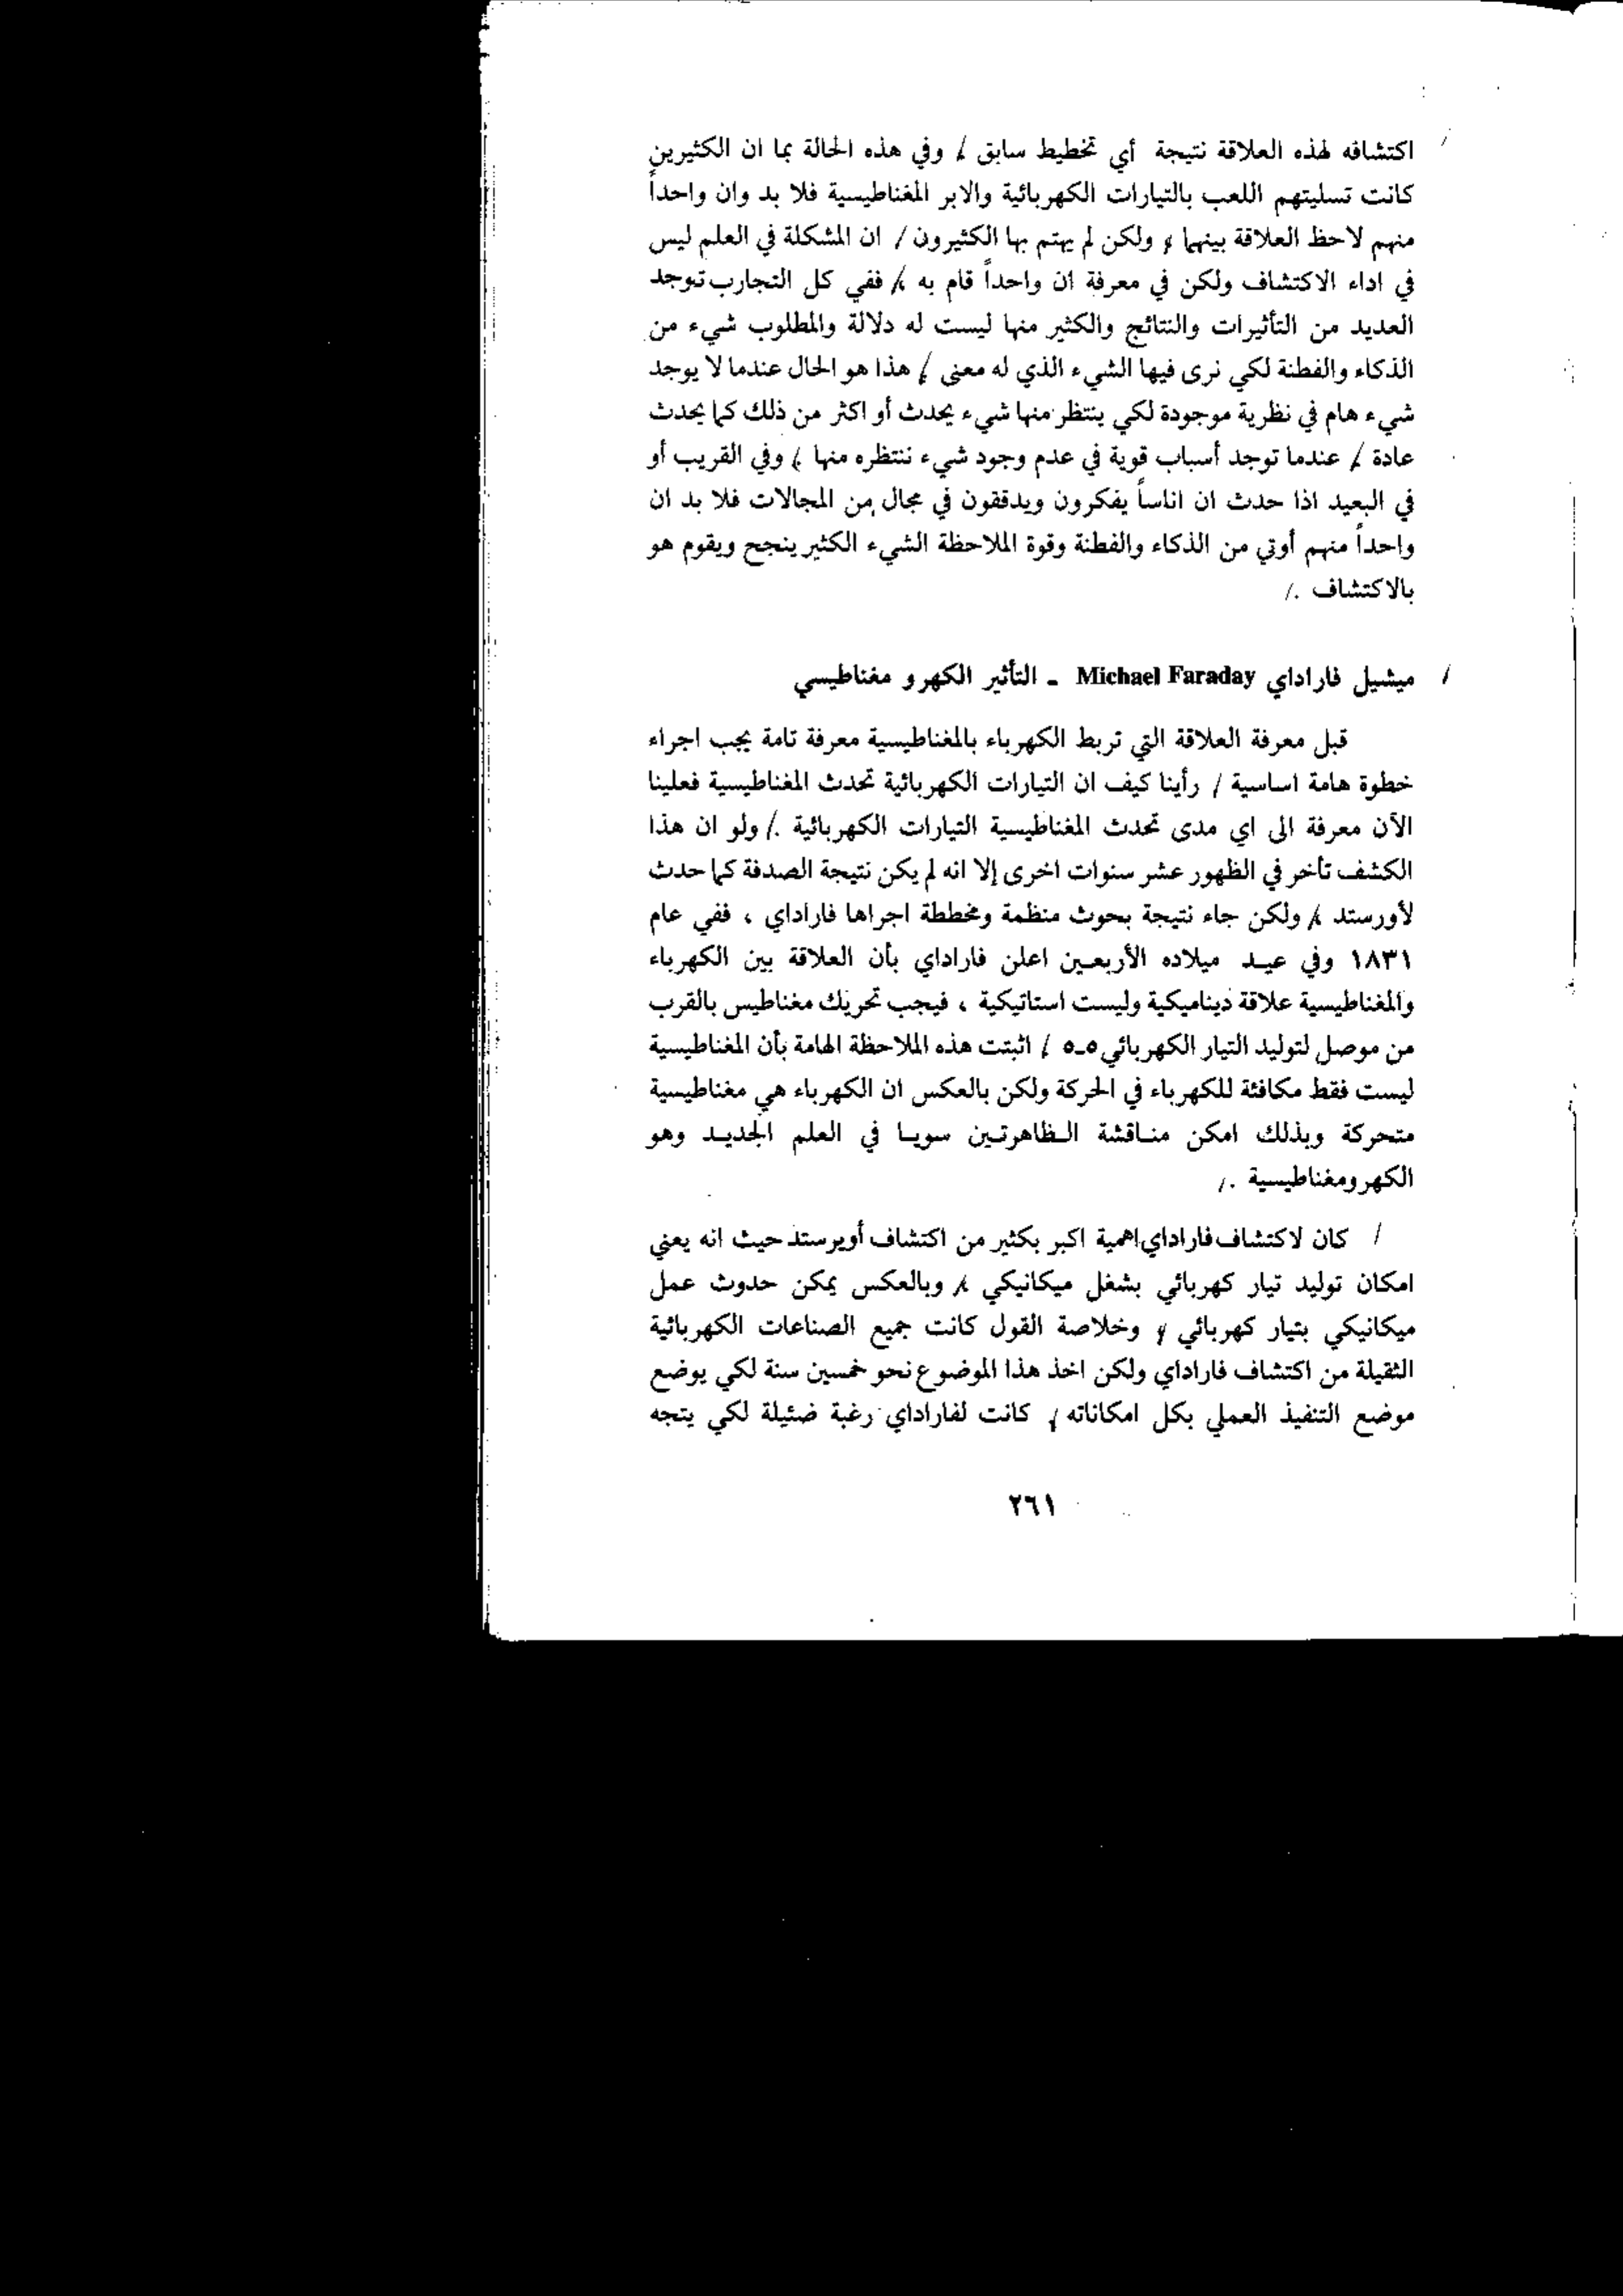 اكتشافه لهذه العلاقة نتيجة أي تخطيط سابق / وفي هذه الحالة بما ان الكثيرين
كانت تسليتهم اللعب بالتيارات الكهربائية والابر المغناطيسية فلا بد وان واحداً
منهم لاحظ العلاقة بينهما ، ولكن لم يهتم بها الكثيرون / ان المشكلة في العلم ليس
في اداء الاكتشاف ولكن في معرفة ان واحداً قام به / ففي كل التجارب توجد
العديد من التأثيرات والنتائج والكثير منها ليست له دلالة والمطلوب شيء من
الذكاء والفطنة لكي نرى فيها الشيء الذي له معنى / هذا هو الحال عندما لا يوجد
شيء هام في نظرية موجودة لكي ينتظر منها شيء يحدث أو اكثر من ذلك كما يحدث
عادة / عندما توجد أسباب قوية في عدم وجود شيء ننتظره منها / وفي القريب أو
في البعيد اذا حدث ان اناساً يفكرون ويدققون في مجال من المجالات فلا بد ان
واحداً منهم أوتي من الذكاء والفطنة وقوة الملاحظة الشيء الكثير ينجح ويقوم هو
بالاكتشاف . /
/ ميشيل فاراداي Michael Faraday ـ التأثير الكهرو مغناطيسي
قبل معرفة العلاقة التي تربط الكهرباء بالمغناطيسية معرفة تامة يجب اجراء
خطوة هامة اساسية / رأينا كيف ان التيارات الكهربائية تحدث المغناطيسية فعلينا
الآن معرفة الى اي مدى تحدث المغناطيسية التيارات الكهربائية . / ولو ان هذا
الكشف تأخر في الظهور عشر سنوات اخرى إلا انه لم يكن نتيجة الصدفة كما حدث
لأورستد / ولكن جاء نتيجة بحوث منظمة ومخططة اجراها فاراداي ، ففي عام
١٨٣١ وفي عيد ميلاده الأربعين اعلن فاراداي بأن العلاقة بين الكهرباء
والمغناطيسية علاقة ديناميكية وليست استاتيكية ، فيجب تحريك مغناطيس بالقرب
من موصل لتوليد التيار الكهربائي ٥ـ٥ / اثبتت هذه الملاحظة الهامة بأن المغناطيسية
ليست فقط مكافئة للكهرباء في الحركة ولكن بالعكس ان الكهرباء هي مغناطيسية
متحركة وبذلك امكن مناقشة الظاهرتين سويا في العلم الجديد وهو
الكهرومغناطيسية . /
/ كان لاكتشاف فاراداي اهمية اكبر بكثير من اكتشاف أويرستد حيث انه يعني
امكان توليد تيار كهربائي بشغل ميكانيكي / وبالعكس يمكن حدوث عمل
ميكانيكي بتيار كهربائي ، وخلاصة القول كانت جميع الصناعات الكهربائية
الثقيلة من اكتشاف فاراداي ولكن اخذ هذا الموضوع نحو خمسين سنة لكي يوضع
موضع التنفيذ العملي بكل امكاناته / كانت لفاراداي رغبة ضئيلة لكي يتجه
٢٦١